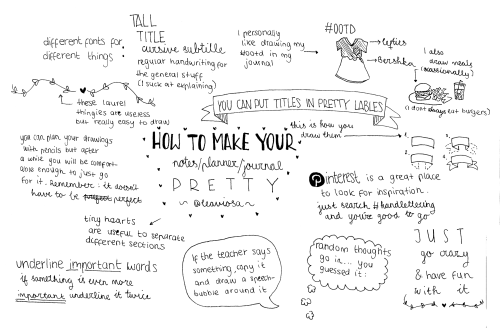 different fonts for
different things :
TALL
TITLE
cursive subtitle
regular handwriting for
the general stuff
(I suck at explaining)
I personally
like drawing my
#ootd in my
journal
#OOTD
lefties
Bershka
I also
draw meals
(occasionally)
(I don't always eat burgers)
these laurel
thingies are useless
but really easy to draw
YOU CAN PUT TITLES IN PRETTY LABLES
this is how you
draw them
1.
2.
3.
4.
you can plan your drawings
with pencils but after
a while you will be comfort-
able enough to just go
for it. Remember: it doesn't
have to be perfect
HOW TO MAKE YOUR
notes/planner/journal
PRETTY
~ @leavosa ~
Pinterest is a great place
to look for inspiration.
just search #handlettering
and you're good to go
tiny hearts
are useful to separate
different sections
underline important words
if something is even more
important underline it twice
If the teacher says
something, copy it
and draw a speech-
bubble around it
random thoughts
go in... you
guessed it:
JUST
go crazy
& have fun
with it